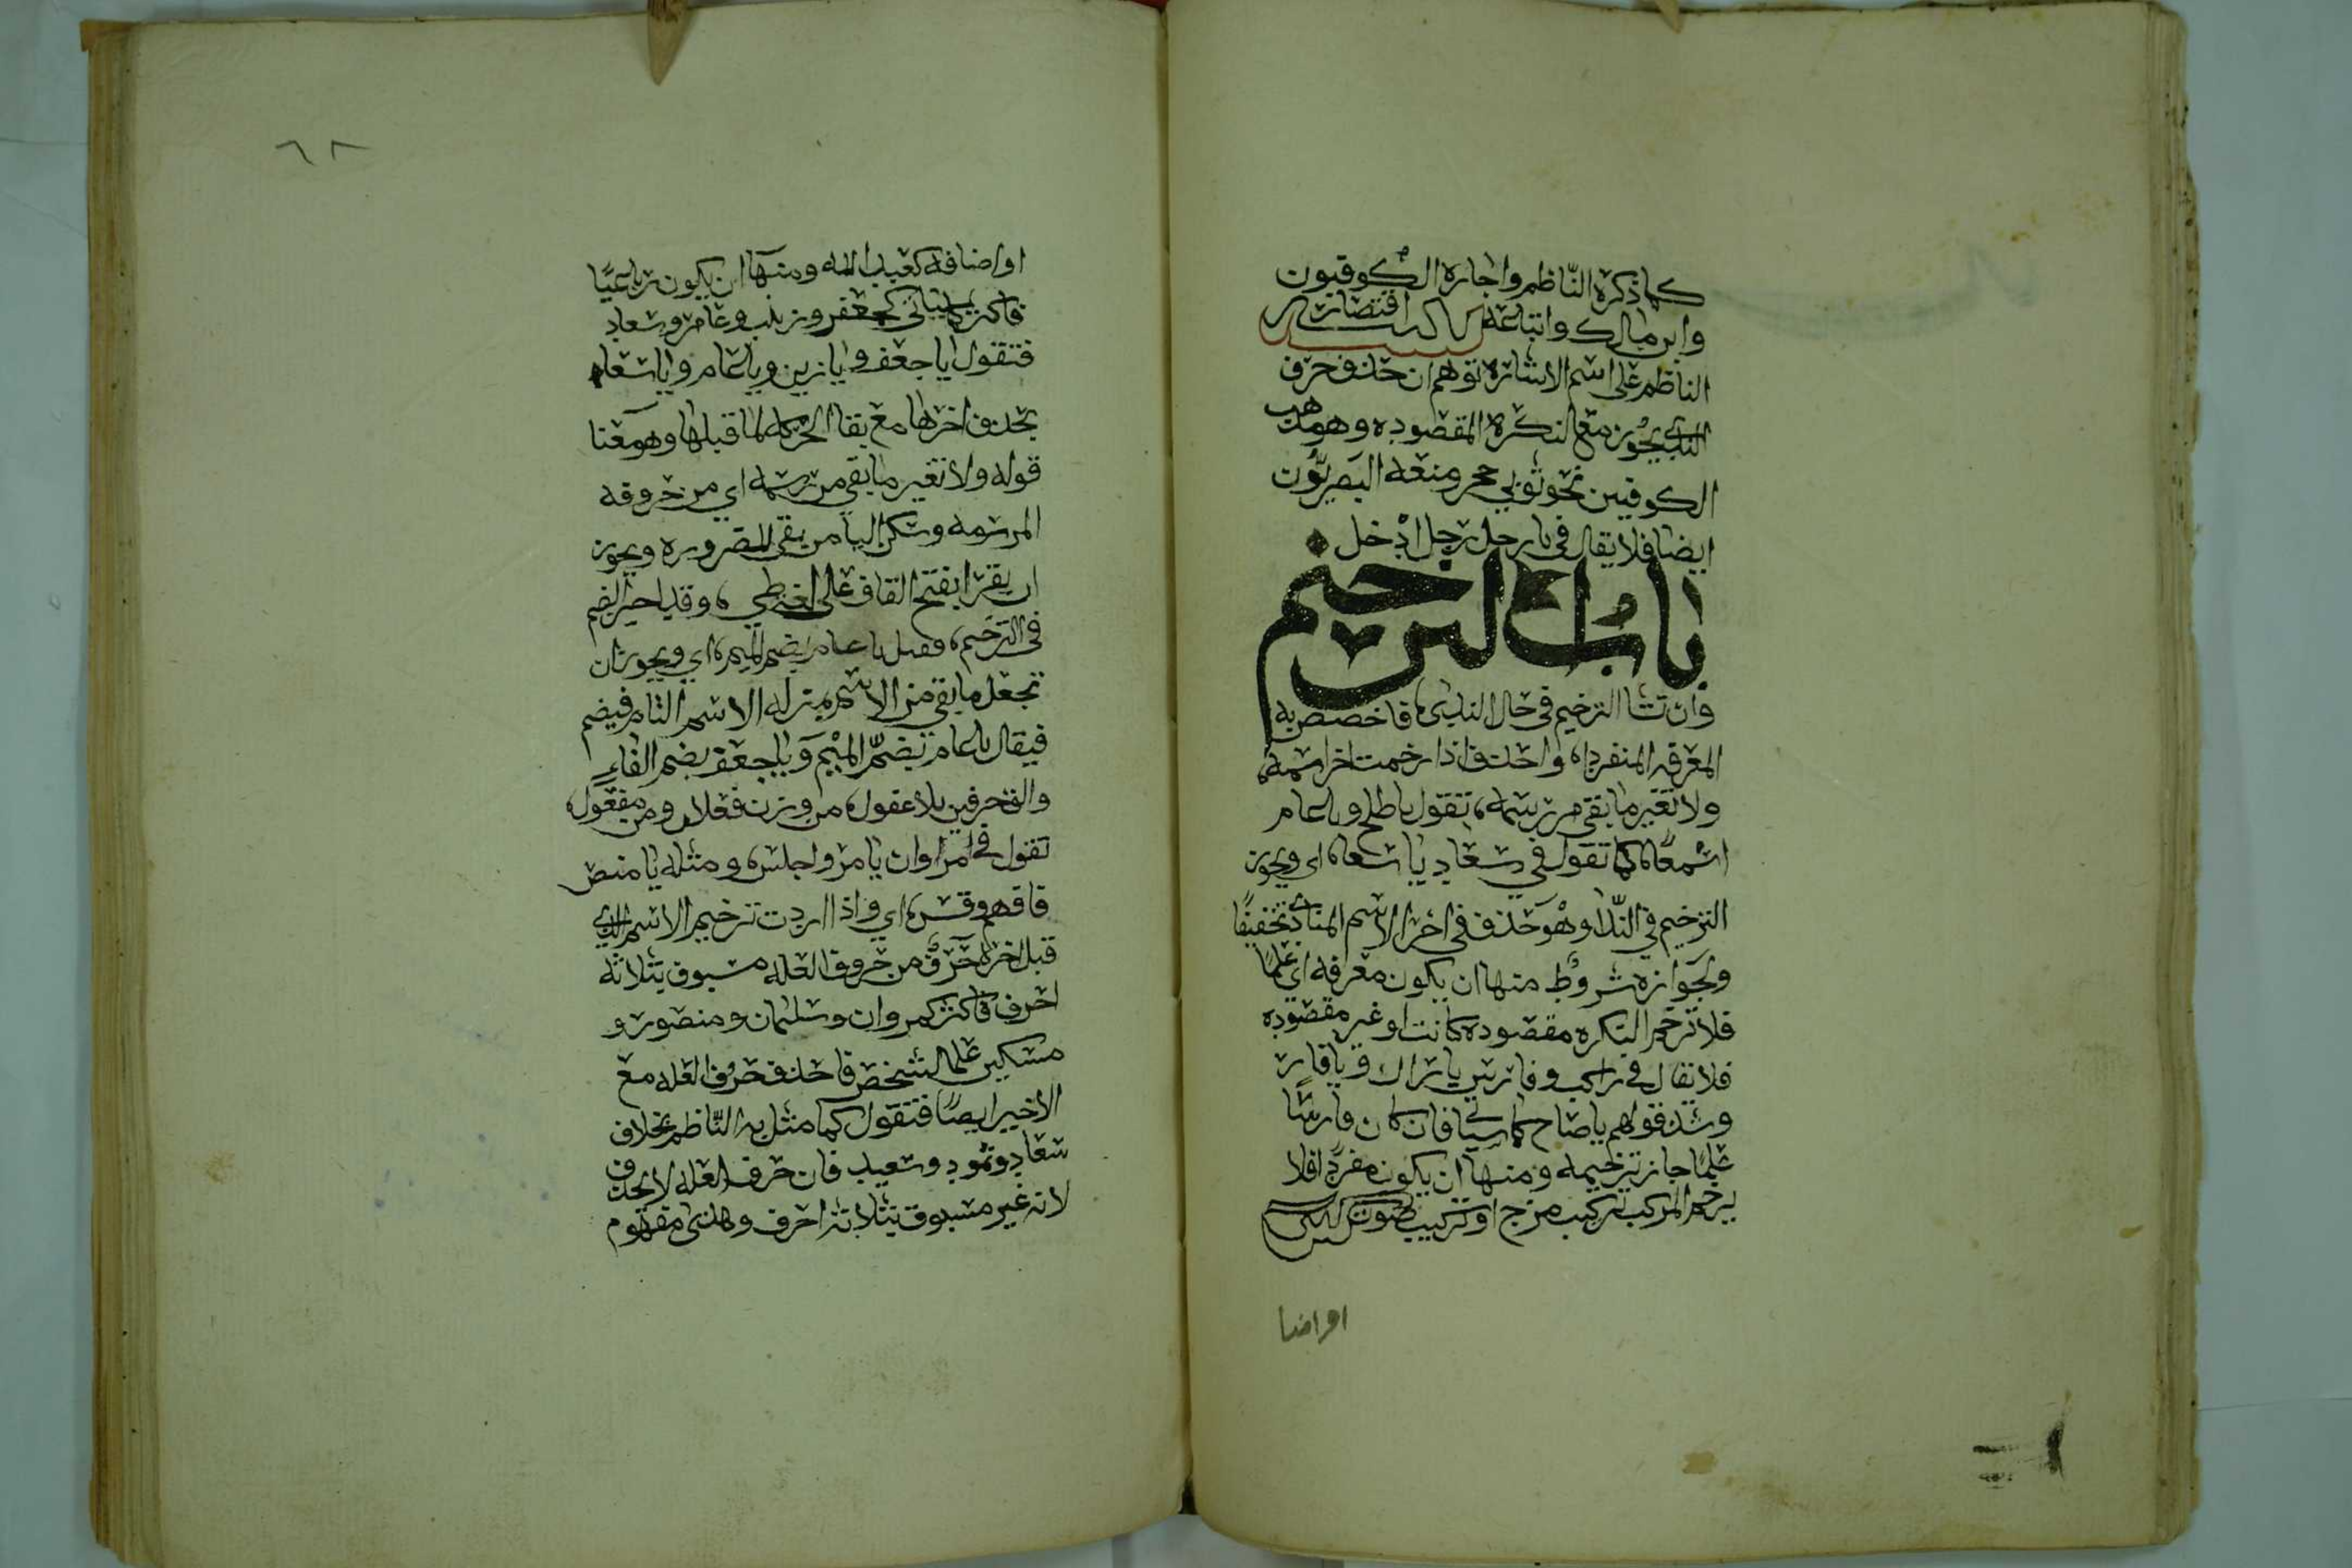 كما ذكره الناظم واجازه الكوفيون
وابن مالك واتباعه لاكن اقتصار
الناظم على اسم الاشاره توهم ان حذف حرف
الندى يجوز مع النكرة المقصوده وهو مذهب
الكوفيين نحو ثوبي حجر ومنعه البصريون
ايضا فلا يقال في يا رجل رجل ادخل
باب الترخيم
وان تشا الترخيم في حال الندى، فاخصص به
المعرفه المنفردا، واحذف اذا رخمت اخر اسمه،
ولا تغير ما بقي من رسمه، تقول يا طلح ويا عام
اسمعا، كما تقول في سعاد يا سعا، اي ويجوز
الترخيم في النّدا وهو حذف في اخر الاسم المنادى تخفيفًا
ولجوازه شروط منها ان يكون معرفه اي علمًا
فلا ترخم النكره مقصوده كانت او غير مقصوده
فلا تقال في راكب وفارس يا راك ويا فار
وشذ قولهم يا صاح كما سياتي فان كان فارسًا
علمًا جاز ترخيمه ومنها ان يكون مفردًا فلا
يرخم المركب تركيب مزج او تركيب
اواضا
٦٨
او اضافه كعبد الله ومنها ان يكون رباعيًا
فاكثر كجعفر وزينب وعامر وسعاد
فتقول يا جعف ويا زين ويا عام ويا سعا
بحذف اخرها مع بقا الحركه لما قبلها وهو معنا
قوله ولا تغير ما بقي من رسمه اي من حروفه
المرسومه وسكن اليا من بقي للضروره ويجوز
ان يقرا بفتح القاف على لغه طي، وقد اجيز الضم
في الترخيم، فقيل يا عام بضم الميم، اي ويجوز ان
تجعل ما بقي من الاسم بمنزله الاسم التام فيضم
فيقال يا عام بضمّ الميْم ويا جعف بضم الفاءِ
والق حرفين بلا غفول، من وزن فعلان ومن مفعول،
تقول في مروان يا مرو اجلس، ومثله يا منص
فافهم وقس، اي واذا اردت ترخيم الاسم الذي
قبل اخره حرفٌ من حروف العله مسبوق بثلاثه
احرف فاكثر كمروان وسليمان ومنصور و
مسكين علما لشخص فاحذف حرف العله مع
الاخير ايضًا فتقول كما مثل به النّاظم بخلاف
سعاد وثمود وسعيد فان حرف العله لا يحذف
لانه غير مسبوق بثلاثه احرف وهذى مفهوم